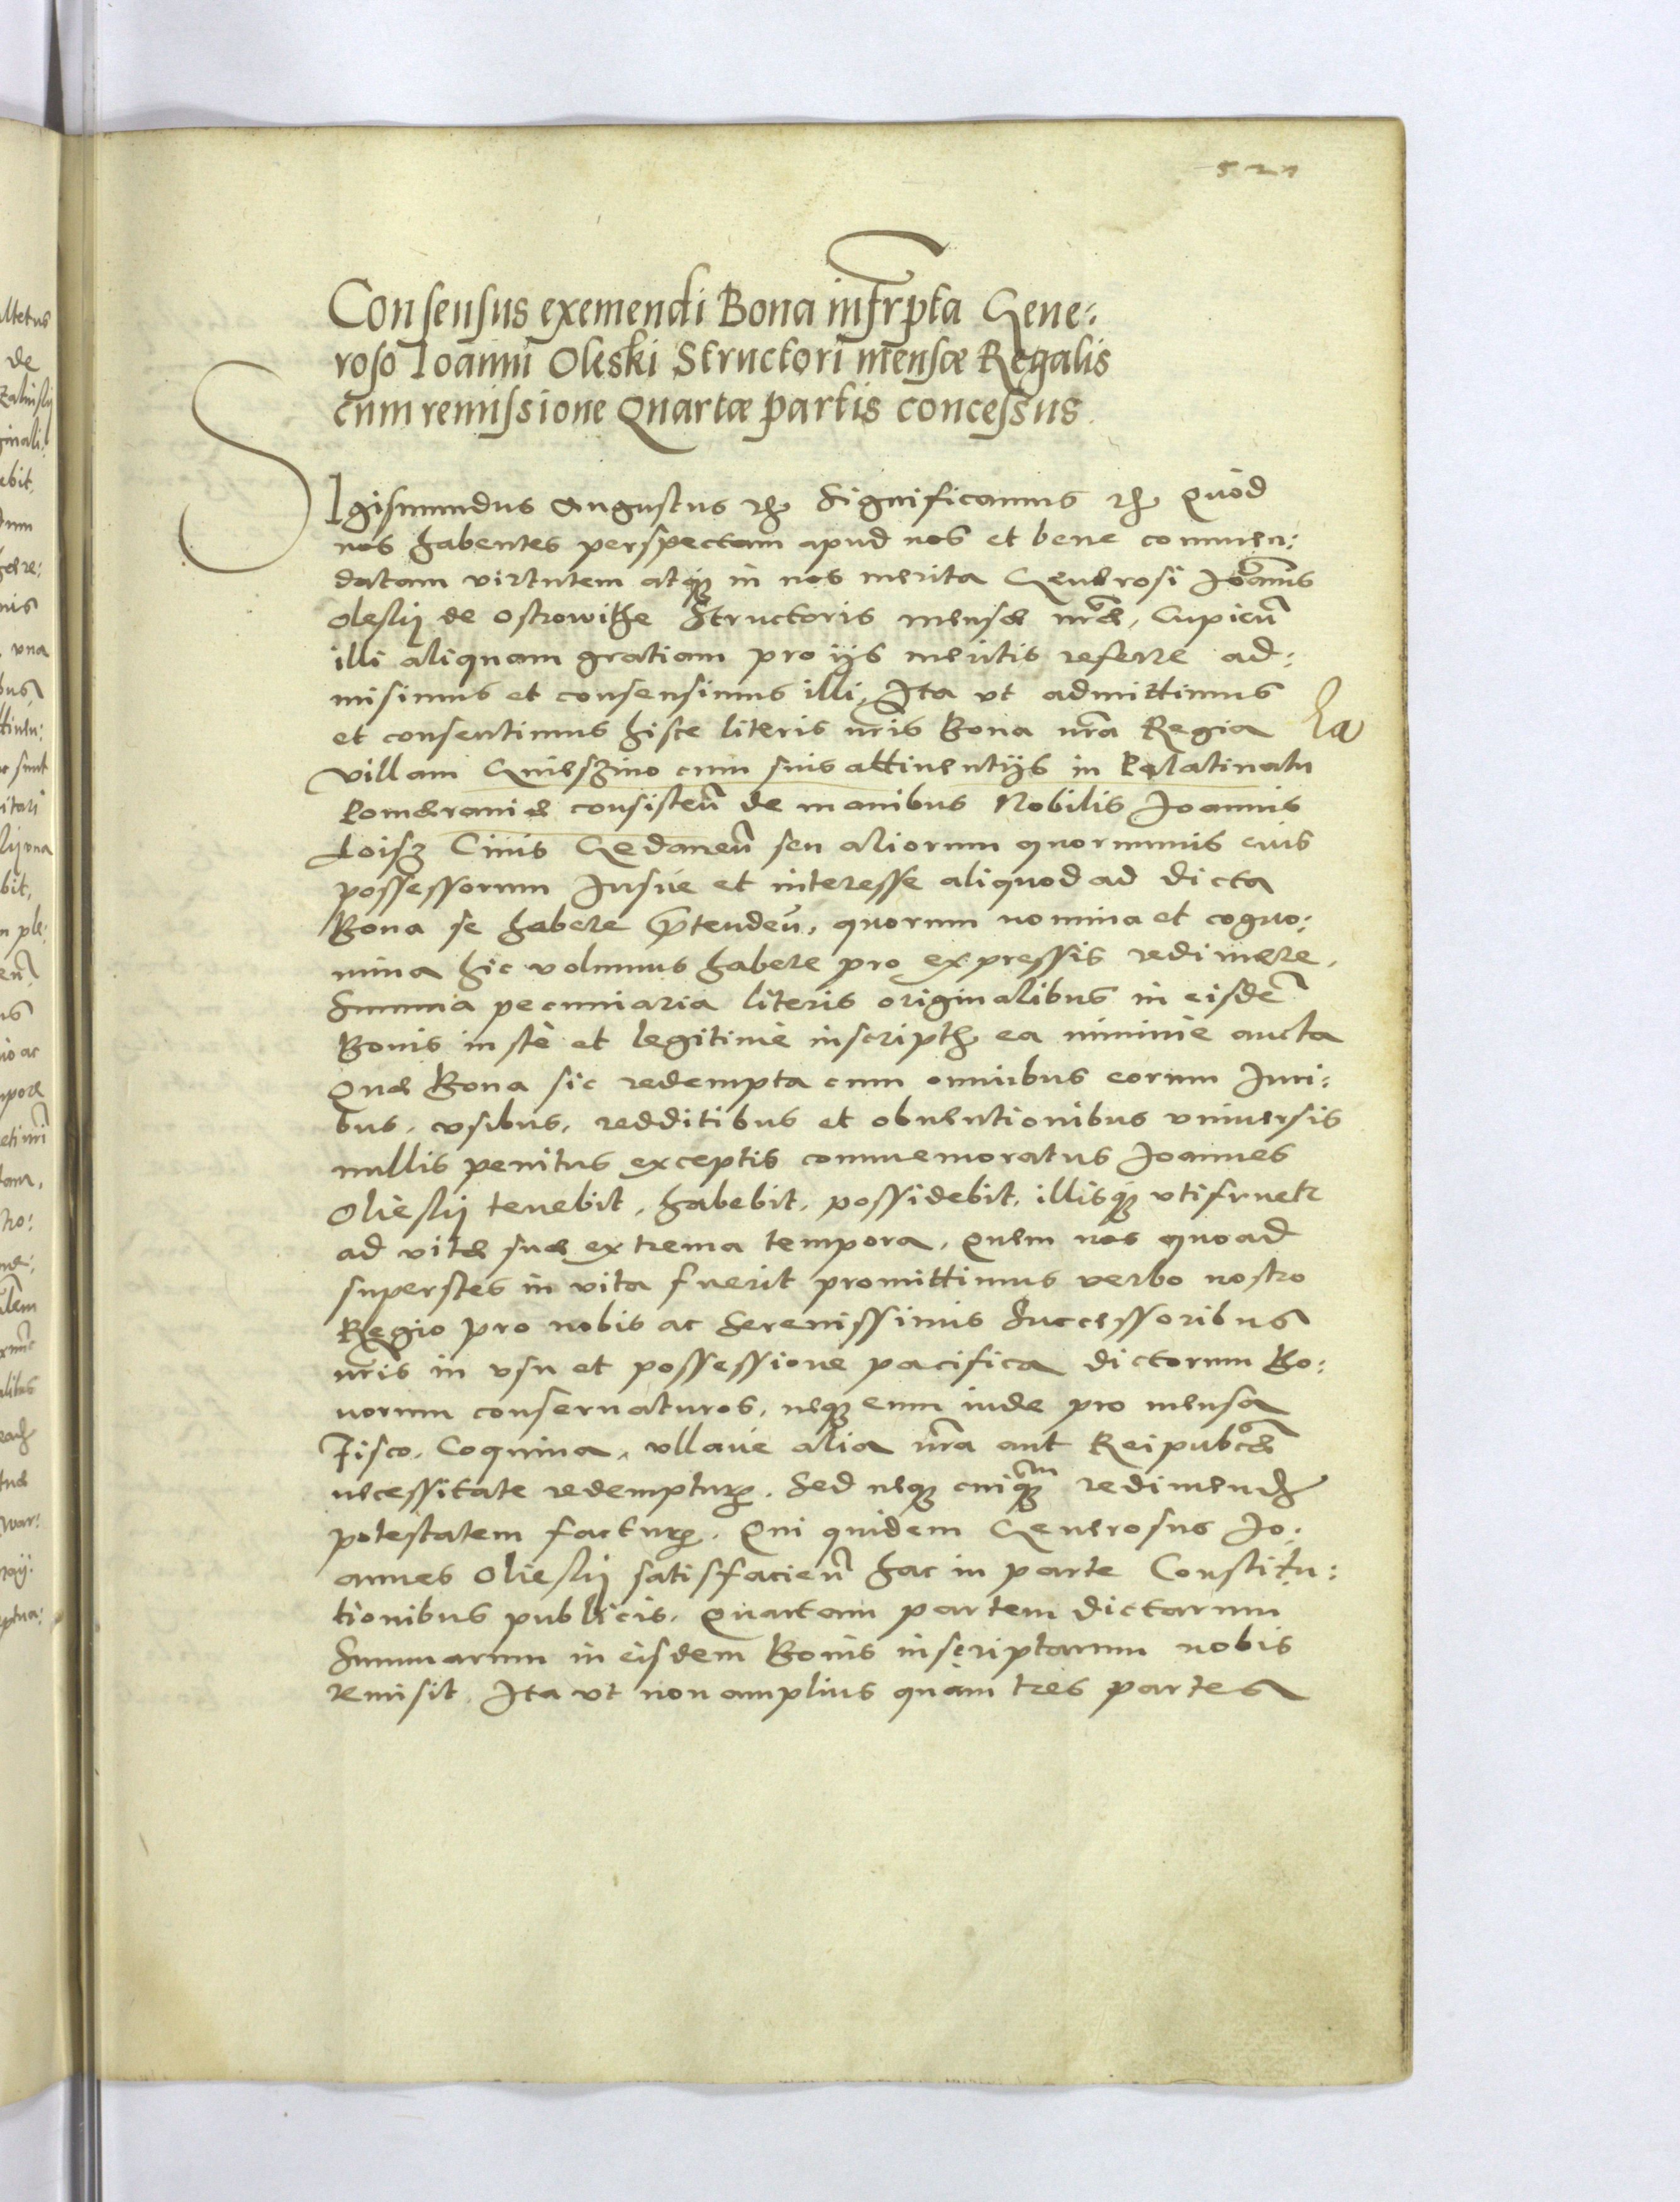 521
Consensus exemendi Bona infrpta Gene:
roso Ioanni Oleski Structori mensæ Regalis
cum remissione Quartæ partis concessus.
SIgismundus Augustus etc Significamus etc Quòd
nos habentes perspectam apud nos et bene commen:
datam virtutem atq in nos merita Generosi Ioannis
Oleslij de Ostrowithe Structoris mensæ nræ, Cupien
illi aliquam gratiam pro ijs meritis referre ad:
misimus et consensimus illi, Ita vt admittimus
et consentimus hisce literis nris Bona nra Regia
villam Gnieszino cum suis attinentijs in Palatinatu
Pomeraniæ consisten de manibus Nobilis Joannis
Loisz Ciuis Gedanen seu aliorum quorumuis eius
possessorum Iusue et interesse aliquod ad dicta
Bona se habere prtenden, quorum nomina et cogno:
mina hic volumus habere pro expressis redimere.
Summa pecuniaria literis originalibus in eisdem
Bonis iustè et legitimè inscripta ea minime aucta
Quæ Bona sic redempta cum omnibus eorum Iuri:
bus, vsibus, redditibus et obuentionibus vniuersis
nullis penitus exceptis commemoratus Joannes
Olieslij tenebit, habebit, possidebit, illisq vtifruetr
ad vitæ suæ extrema tempora. Quem nos quoad
superstes in vita fuerit promittimus verbo nostro
Regio pro nobis ac Serenissimis Successoribus
nris in vsu et possessione pacifica dictorum Bo:
norum conseruaturos, neq eum inde pro mensa
Fisco, Coquina, vllaue alia nra aut Reipubcæ
necessitate redempturos. Sed neq cuiqm redimendi
potestatem facturos. Qui quidem Generosus Jo:
annes Olieslij satisfacien hac in parte Constitu:
tionibus publicis. Quartam partem dictarum
Summarum in eisdem Bonis inscriptarum nobis
remisit. Ita vt non amplius quàm tres partes